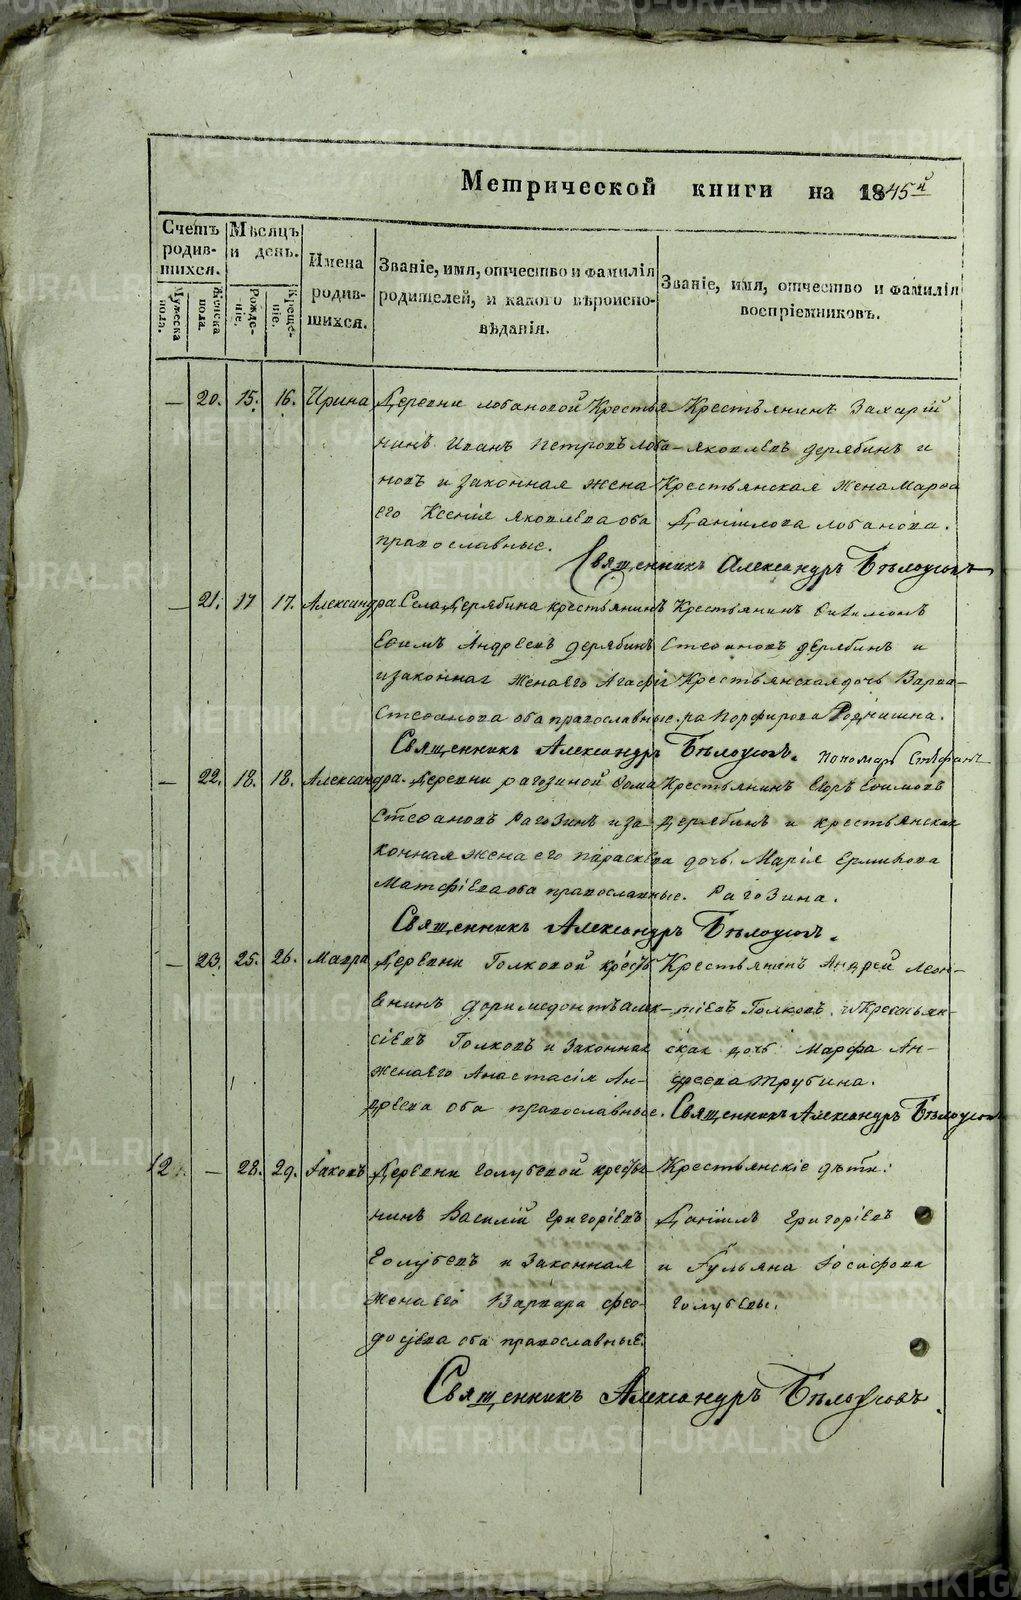 METRIKI.GASO-URAL.RU
Метрической книги на 1845й
Счетъ родившихся.
Мужеска пола.
Женска пола.
Мѣсяцъ и день.
Рожденіе.
Крещеніе.
Имена родившихся.
Званіе, имя, отчество и фамилія родителей, и какого вѣроисповѣданія.
Званіе, имя, отчество и фамилія воспріемниковъ.
— 20. 15. 16. Ирина
Деревни Лобановой Крестья
нинъ Иванъ Петровъ Лоба-
новъ и законная жена
его Ксенія Яковлева оба
православные.
Крестьянинъ Захарій
Яковлевъ Дерябинъ и
Крестьянская жена Марѳа
Даніилова Лобанова.
Священникъ Александръ Бѣлоусовъ
— 21. 17 17. Александра
Села Дерябина крестьянинъ
Ефимъ Андреевъ Дерябинъ
и законная жена его Агафія
Стефанова оба православные.
Крестьянинъ Филимонъ
Стефановъ Дерябинъ и
Крестьянская дочь Варва-
ра Порфирова
Священникъ Александръ Бѣлоусовъ. Пономарь Стефанъ
— 22. 18. 18. Александра.
Деревни Рагозиной Фома
Стефановъ Рагозинъ и за-
конная жена его Параскева
Матфіева оба православные.
Крестьянинъ Егоръ Ефимовъ
Дерябинъ и крестьянская
дочь Марія Ермилова
Рагозина.
Священникъ Александръ Бѣлоусовъ.
— 23. 25. 26. Мавра
Деревни Толковой кресть
янинъ Доримедонтъ Алек-
сіевъ Толковъ и законная
жена его Анастасія Ан-
дреева оба православные.
Крестьянинъ Андрей Леон-
тіевъ Толковъ и Крестьян-
ская дочь Марфа Ан-
дреева Трубина.
Священникъ Александръ Бѣлоусовъ
12 — 28. 29. Іаковъ
Деревни Голубевой крестья-
нинъ Василій Григоріевъ
Голубевъ и законная
жена его Варвара Фео-
досіева оба православные.
Крестьянскіе дѣти:
Даніилъ Григоріевъ
и Іульяна Іосифова
Голубевы.
Священникъ Александръ Бѣлоусовъ.